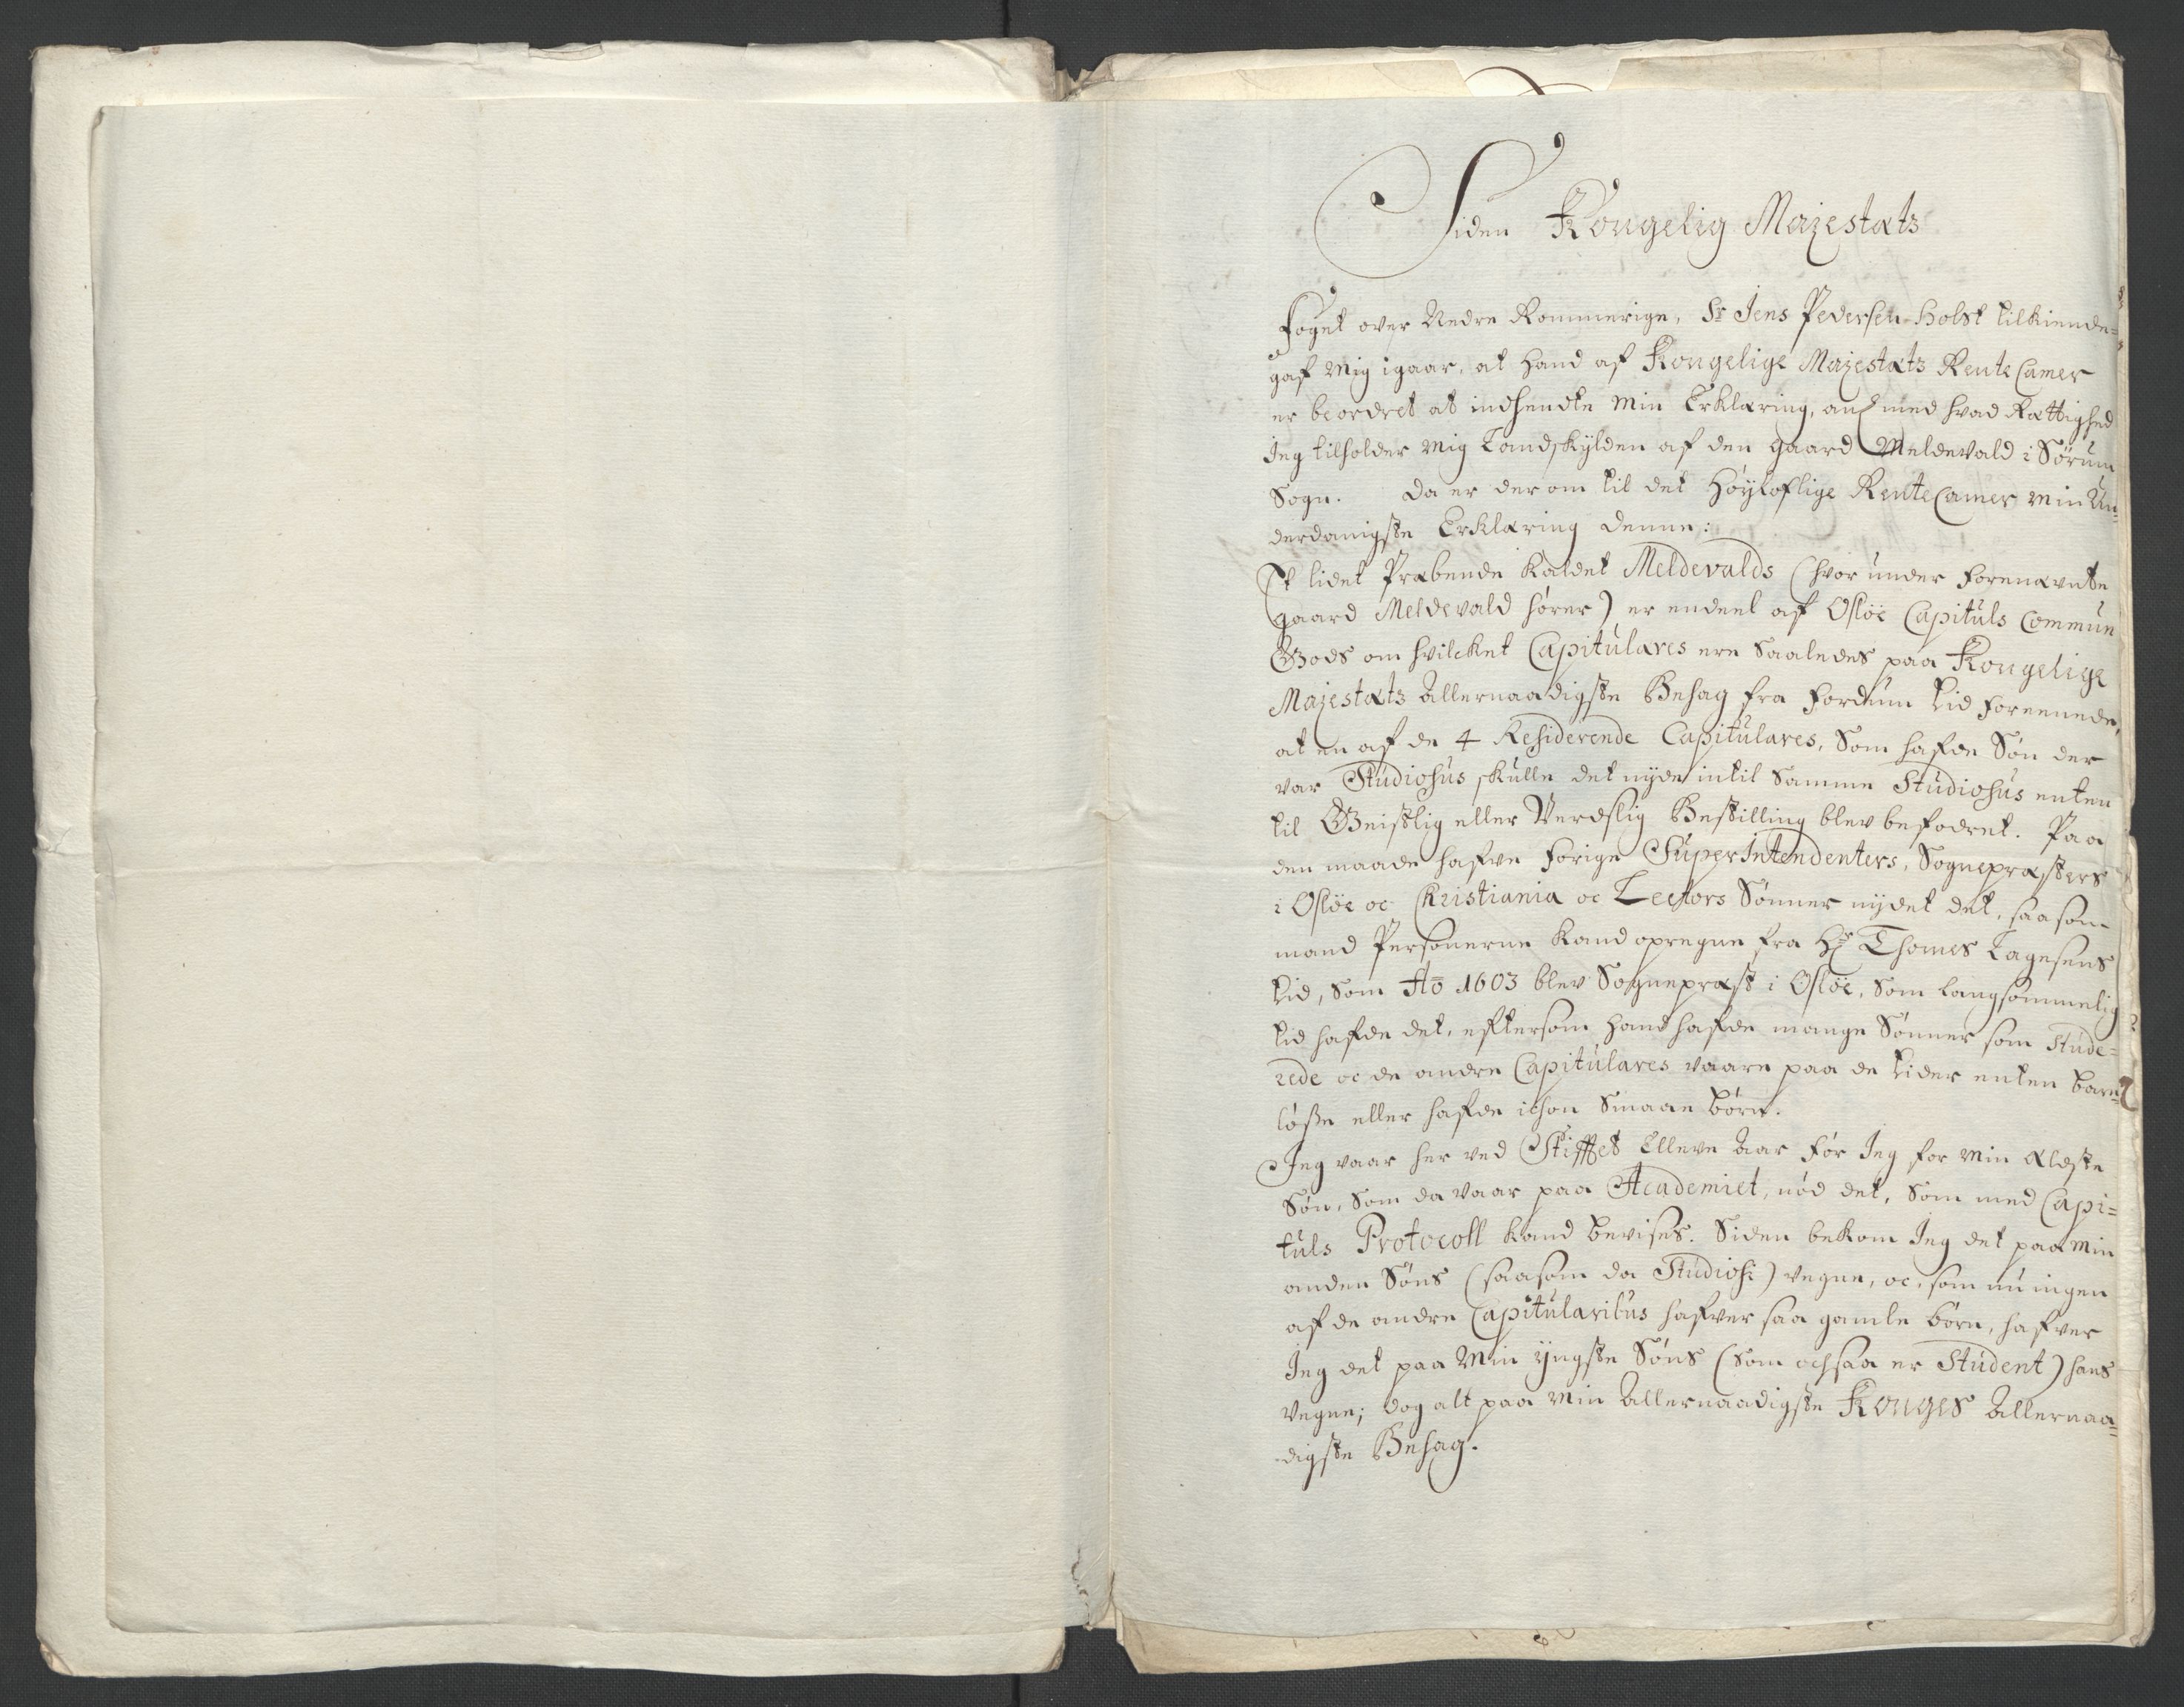 Siden Kongelig Majestæts
Foget over Nedre Rommerige, Sr Jens Pedersen Holst tilkiende=
gaf mig igaar, at hand af Kongelige Majestæts RenteCamer
er beordret at indhendte min Erklæring, med hvad Rættighed
Jeg tilholder mig Landskylden af den gaard Meldevald i Sørum
Sogn. Da er der om til det Høyloflige RenteCamer min Un=
derdanigste Erklæring denne:
Et lidet Præbende kaldet Meldevalds (hvor under forenævnte
gaard Meldevald hører) er endeel af Osløe Capituls Commun
Gods om hvilcket Capitulares ere saaledes paa Kongelige
Majestæts Allernaadigste Behag fra fordum tid foreenede,
at en af de 4 Residerende Capitulares, som hafde Søn der
var Studiosus skulle det nyde intil samme Studiosus enten
til Geistlig eller Verdslig Bestilling blev befodret. Paa
den maade hafve forige SuperIntendenters, Sognepræsters
i Osløe oc Christiania oc Lectors Sønner nydet det, saa som
mand Personerne kand opregne fra Hr Thomes Lagesens
tid, som Ao 1603 blev Sognepræst i Osløe, som langsommelig
tid hafde det, eftersom hand hafde mange Sønner som stude=
rede oc de andre Capitulares vaare paa de tider enten barn=
løsse eller hafde ichon smaae børn.
Jeg vaar her ved Stifftet Elleve Aar før Jeg for min ældste
Søn, som da vaar paa Academiet, nød det, som med Capi=
tuls Protocoll kand bevises. Siden bekom Jeg det paa min
anden Søns (saasom da Studiosi) vegne, oc, som nu ingen
af de andre Capitularibus hafver saa gamle børn, hafver
Jeg det paa min yngste Søns (som ochsaa er Student) hans
vegne; dog alt paa min Allernaadigste Konges Allernaa=
digste Behag.